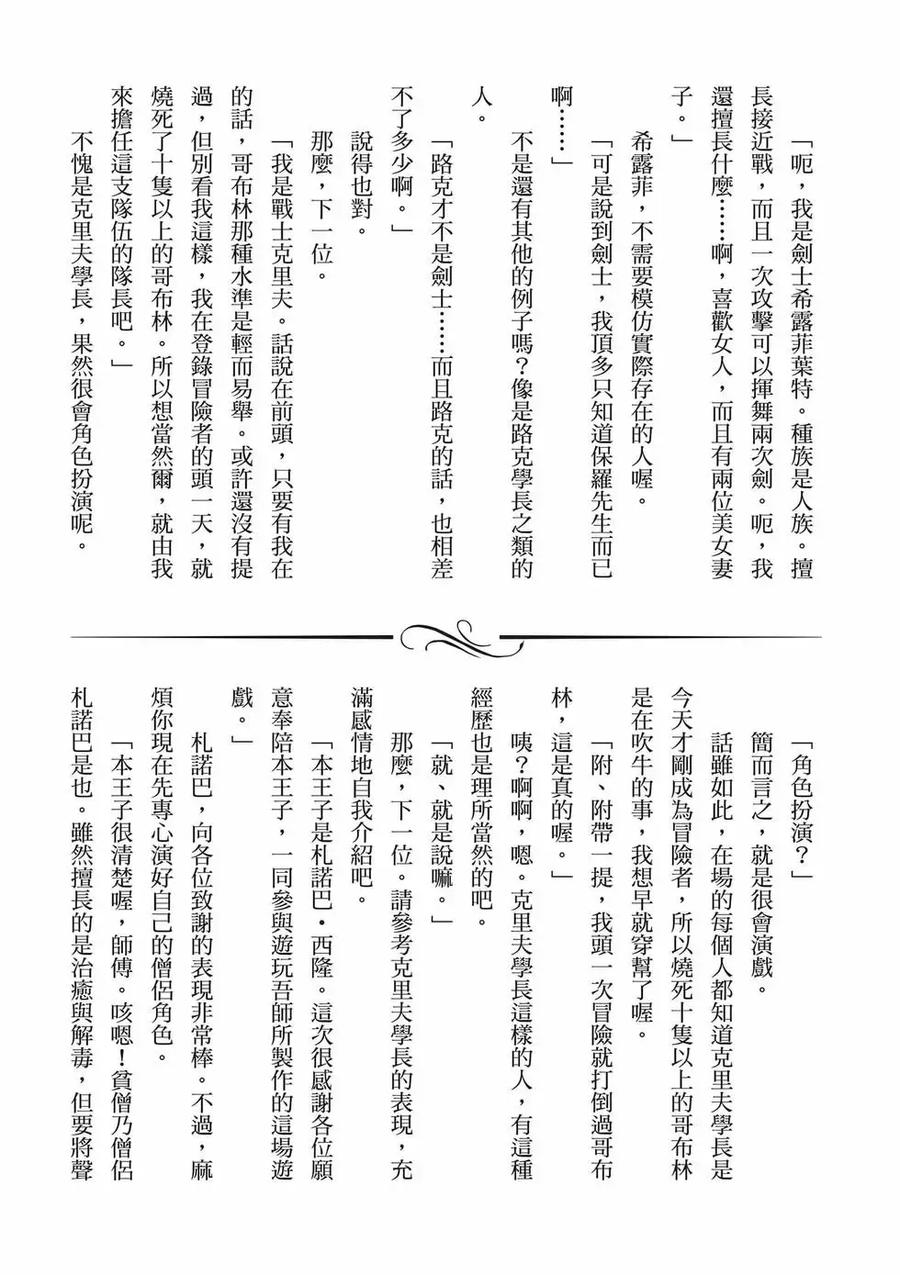 「呃，我是劍士希露菲葉特。種族是人族。擅
長接近戰，而且一次攻擊可以揮舞兩次劍。呃，我
還擅長什麼……啊，喜歡女人，而且有兩位美女妻
子。」
希露菲，不需要模仿實際存在的人喔。
「可是說到劍士，我頂多只知道保羅先生而已
啊……」
不是還有其他的例子嗎？像是路克學長之類的
人。
「路克才不是劍士……而且路克的話，也相差
不了多少啊。」
說得也對。
那麼，下一位。
「我是戰士克里夫。話說在前頭，只要有我在
的話，哥布林那種水準是輕而易舉。或許還沒有提
過，但別看我這樣，我在登錄冒險者的頭一天，就
燒死了十隻以上的哥布林。所以想當然爾，就由我
來擔任這支隊伍的隊長吧。」
不愧是克里夫學長，果然很會角色扮演呢。
「角色扮演？」
簡而言之，就是很會演戲。
話雖如此，在場的每個人都知道克里夫學長是
今天才剛成為冒險者，所以燒死十隻以上的哥布林
是在吹牛的事，我想早就穿幫了喔。
「附、附帶一提，我頭一次冒險就打倒過哥布
林，這是真的喔。」
咦？啊啊，嗯。克里夫學長這樣的人，有這種
經歷也是理所當然的吧。
「就、就是說嘛。」
那麼，下一位。請參考克里夫學長的表現，充
滿感情地自我介紹吧。
「本王子是札諾巴・西隆。這次很感謝各位願
意奉陪本王子，一同參與遊玩吾師所製作的這場遊
戲。」
札諾巴，向各位致謝的表現非常棒。不過，麻
煩你現在先專心演好自己的僧侶角色。
「本王子很清楚喔，師傅。咳嗯！貧僧乃僧侶
札諾巴是也。雖然擅長的是治癒與解毒，但要將聲